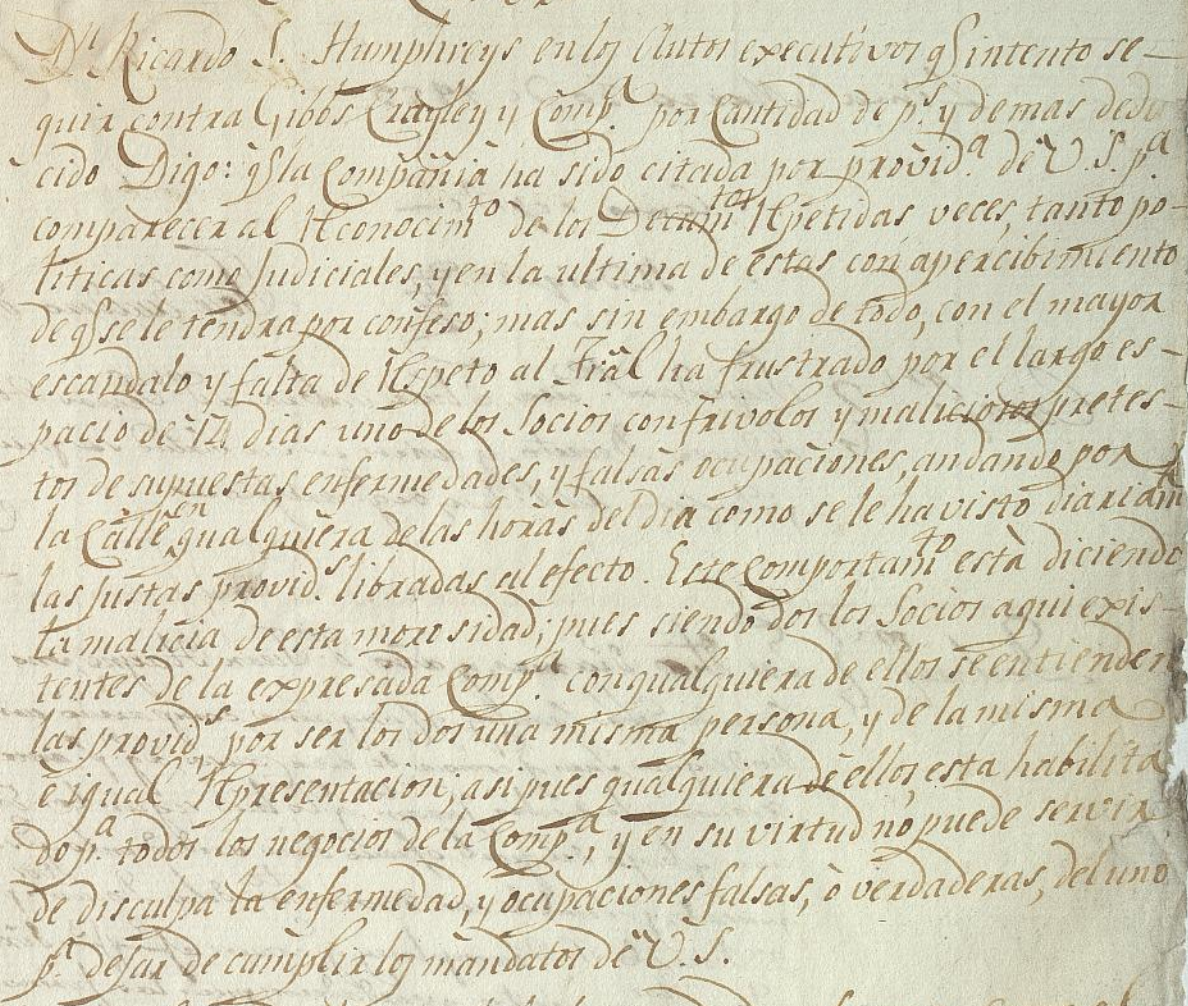 Dn Ricardo S. Humphreys en los Autos executivos q̃ intento se-
guir contra Gibbs Crawley y Compa. por Cantidad de ps. y demas dedu
cido Digo: q̃ la Compañia ha sido citada por provida. de V.S. pa.
comparecer al Reconocimto de los Docum.tos Repetidas veces, tanto po-
liticas como Judiciales, y en la ultima de estas con apercibimiento
de q̃ se le tendra por confeso; mas sin embargo de todo, con el mayor
escandalo y falta de Respeto al Trãl ha frustrado por el largo es-
pacio de 14 dias uno de los Socios con frivolos y maliciosos pretes-
tos de supuestas enfermedades, y falsas ocupaciones, andando por
la Calle en qualquiera de las horas del dia como se le ha visto diariamte
las justas provids. libradas al efecto. Este Comportamto està diciendo
la malicia de esta morosidad; pues siendo dos los Socios aqui exis-
tentes de la expresada Compa. con qualquiera de ellos se entienden
las provids. por ser los dos una misma persona, y de la misma
e igual Representacion; asi pues qualquiera de ellos esta habilita
do pa. todos los negocios de la Compa., y en su virtud no puede servir
de disculpa la enfermedad, y ocupaciones falsas, ò verdaderas, del uno
pa. dejar de cumplir los mandatos de V.S.